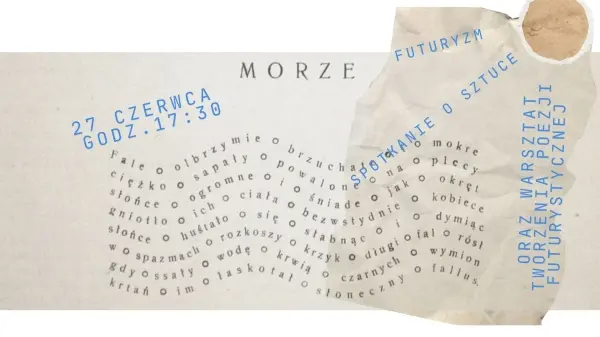 MORZE
FUTURYZM
SPOTKANIE O SZTUCE
27 CZERWCA
GODZ.17:30
ORAZ WARSZTAT
TWORZENIA POEZJI
FUTURYSTYCZNEJ
Fale o olbrzymie o brzuchate o mokre
ciężko o sapały o powalone o na o plecy
słońce o ogromne o i o śniade o jak o okręt
gniotło o ich o ciała o bezwstydnie o kobiece
słońce o huśtało o się o słabnąc o i o dymiąc
w o spazmach o rozkoszy o krzyk o długi o fal o rósł
gdy o ssały o wodę o krwią o czarnych o wymion
krtań o im o łaskotał o słoneczny o fallus.